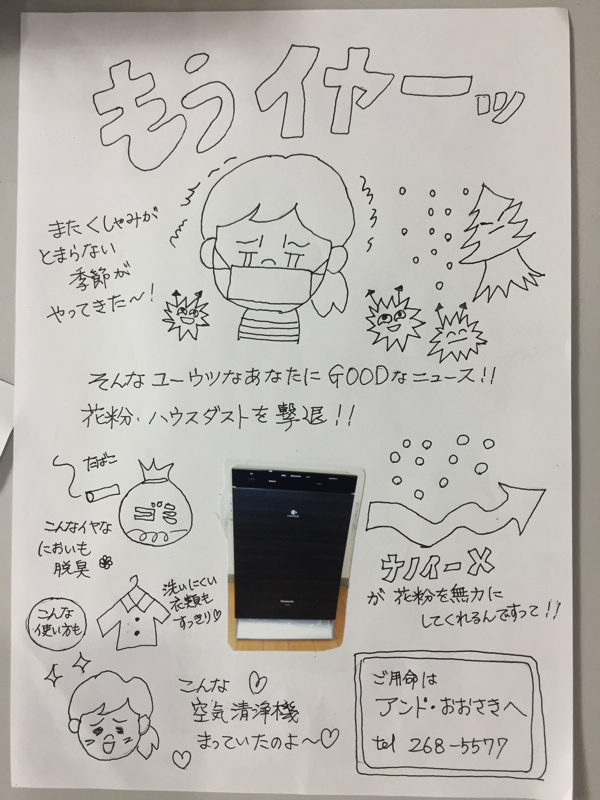 もうイヤーッ
またくしゃみが
とまらない
季節が
やってきた〜!
そんなユーウツなあなたにGOODなニュース!!
花粉、ハウスダストを撃退!!
たばこ
こんなイヤな
においも
脱臭
ナノイーX
が花粉を無力に
してくれるんですって!!
洗いにくい
衣類も
すっきり♡
こんな
使い方も
Panasonic
こんな♡
空気清浄機
まっていたのよ〜♡
ご用命は
アンド・おおさきへ
tel 268-5577